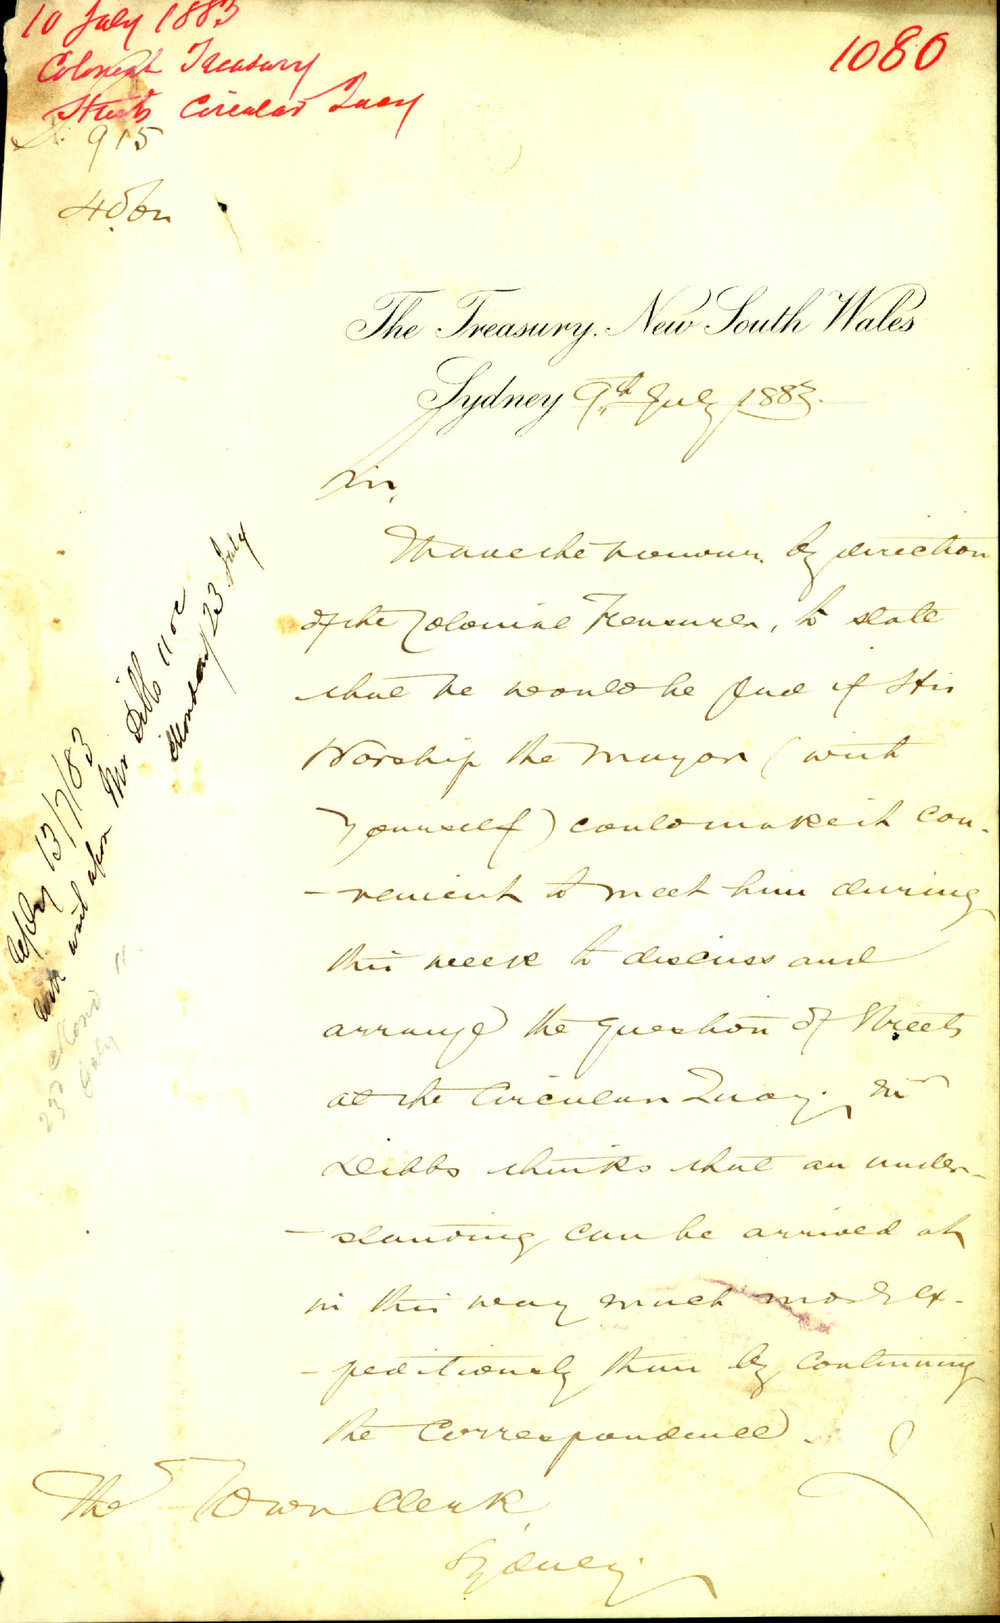 10 July 1883
Colonial Treasury
Streets Circular Quay
1080
915
The Treasury, New South Wales
Sydney 9th July 1883.
Sir,
I have the honour, by direction
of the Colonial Treasurer, to state
that he would be glad if His
Worship the Mayor (with
yourself) could make it con-
-venient to meet him during
this week to discuss and
arrange the question of Streets
at the Circular Quay. Mr
Dibbs thinks that an under-
-standing can be arrived at
in this way much more ex-
-peditiously than by continuing
the Correspondence.
The Town Clerk,
Sydney.
13/7/83
will wait upon Mr Dibbs 11 oc
Monday 23 July
23d
July